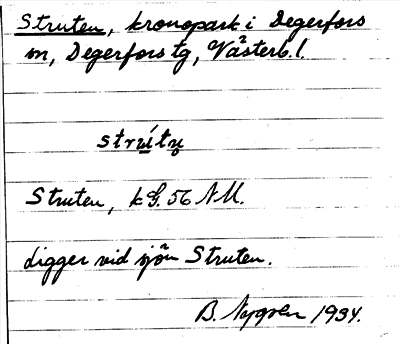 Struten, kronopark i Degerfors
m, Degerfors tg, Västerb. l.
Struten, kG. 56 NM.
Ligger vid sjön Struten.
B. Nygren 1934.